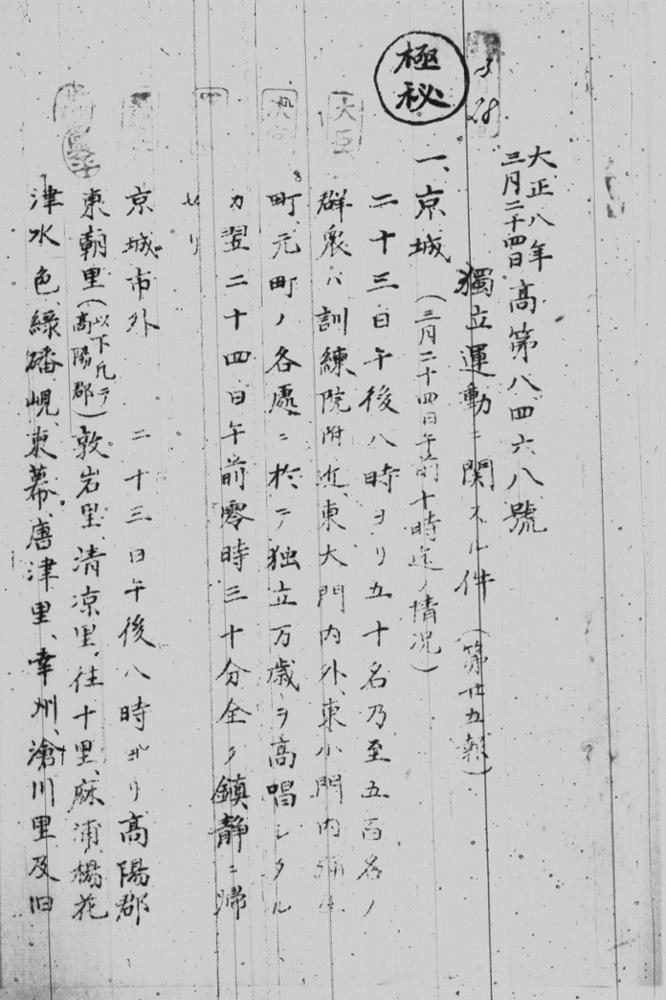 極秘
3
28
大正八年
三月二十四日
高第八四六八號
獨立運動ニ関スル件 (第廿五報)
一、京城 (三月二十四日午前十時迄ノ情況)
二十三日午後八時ヨリ五十名乃至五百名ノ
群衆ハ訓練院附近、東大門内外、東小門内
町、元町ノ各處ニ於テ独立万歳ヲ高唱シタル
カ翌二十四日午前零時三十分全ク鎮静ニ帰
セリ
京城市外 二十三日午後八時ヨリ高陽郡
東朝里(以下凡テ高陽郡)敦岩里、清凉里、往十里、麻浦、楊花
津水色、綠磻峴、東幕、唐津里、幸州、滄川里及旧